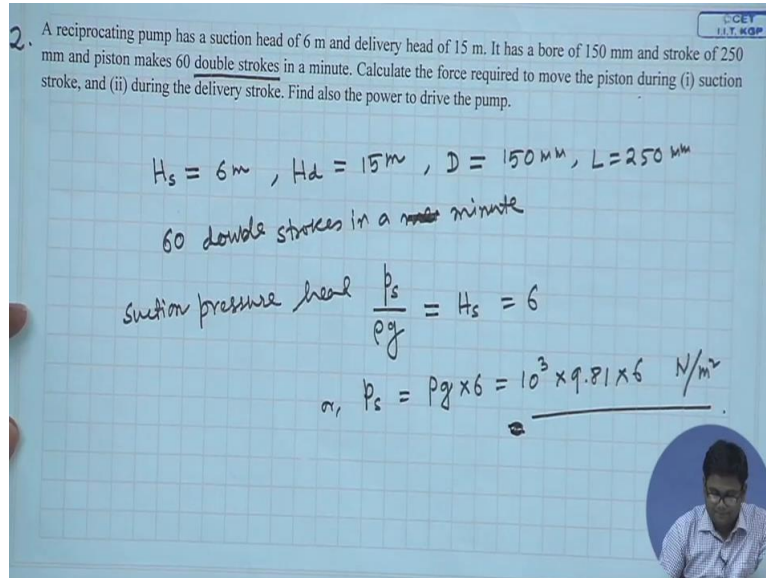 CCET
I.I.T. KGP
2. A reciprocating pump has a suction head of 6 m and delivery head of 15 m. It has a bore of 150 mm and stroke of 250
mm and piston makes 60 double strokes in a minute. Calculate the force required to move the piston during (i) suction
stroke, and (ii) during the delivery stroke. Find also the power to drive the pump.
Hs = 6m, Hd = 15m, D = 150 mm, L = 250 mm
60 double strokes in a minute
Suction pressure head ps/ρg = Hs = 6
or, ps = ρg×6 = 10³ × 9.81×6 N/m²